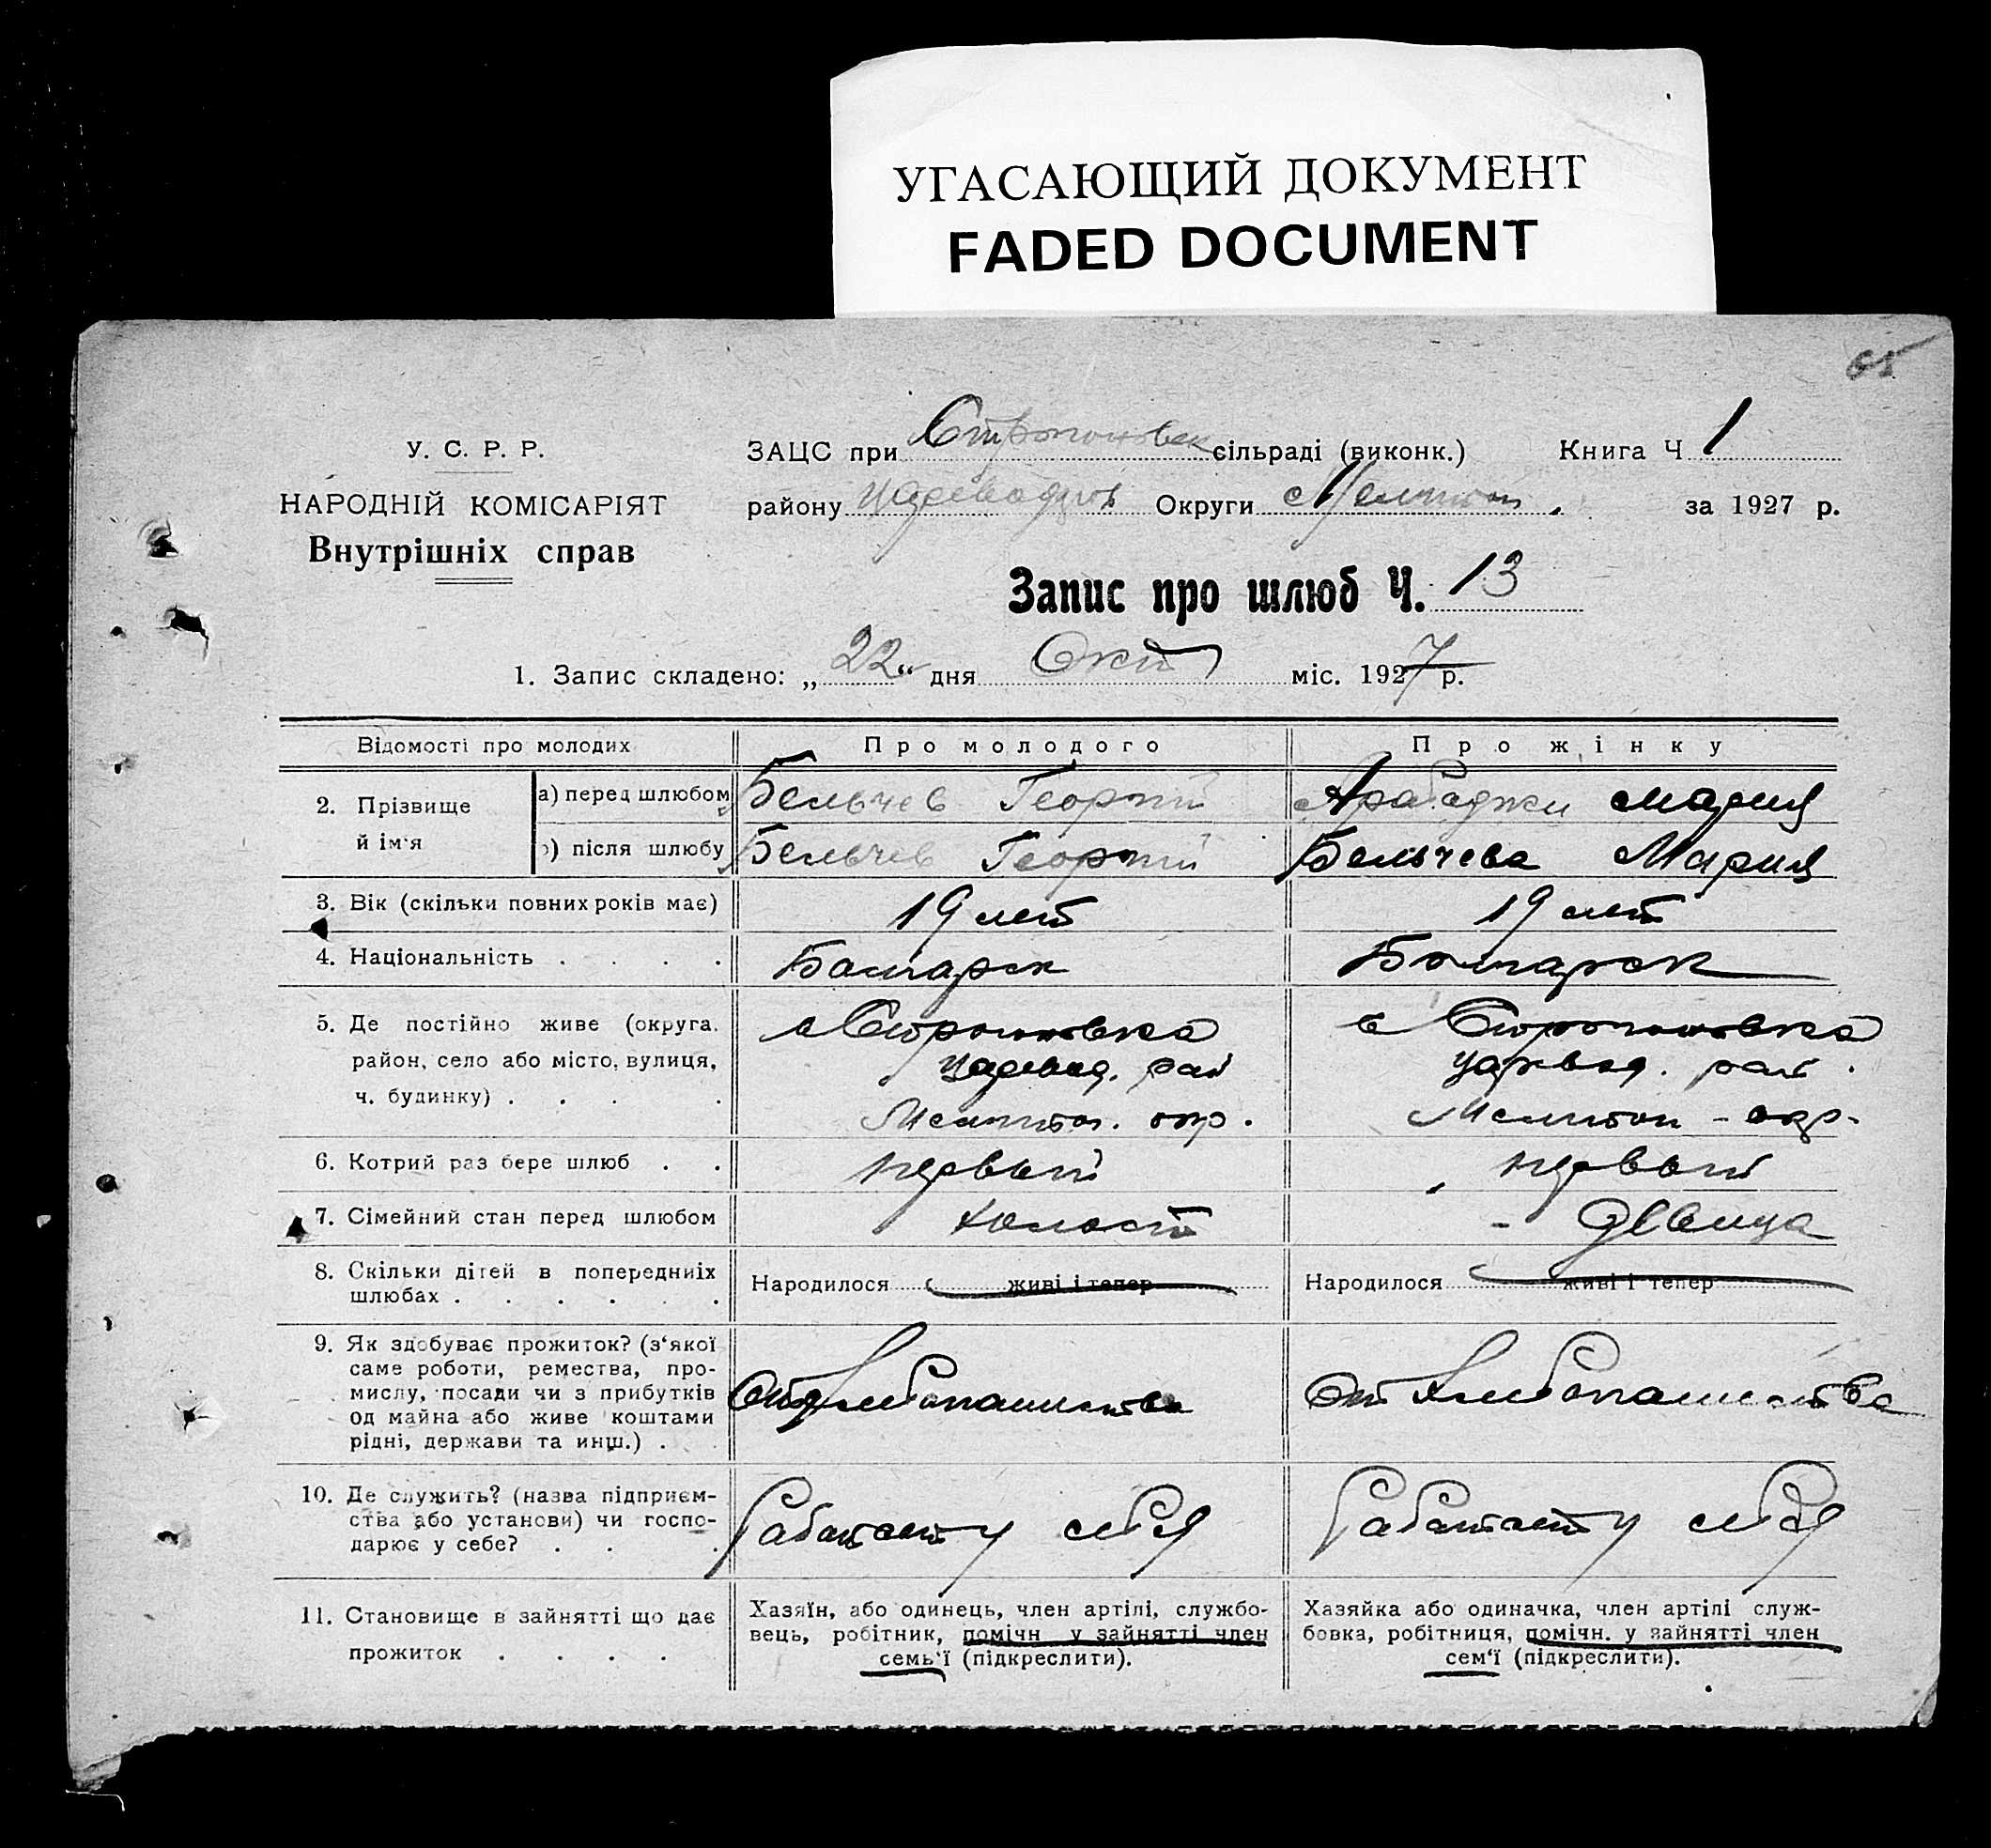 УГАСАЮЩИЙ ДОКУМЕНТ
FADED DOCUMENT
65
У. С. Р. Р.
НАРОДНІЙ КОМІСАРІЯТ
Внутрішніх справ
ЗАЦС при Строгановск сільраді (виконк.) Книга Ч 1
району Цареводар Округи Мелитоп. за 1927 р.
Запис про шлюб Ч. 13
1. Запис складено: „22“ дня Окт міс. 1927 р.
Відомості про молодих Про молодого Про жінку
2. Прізвище й ім'я
а) перед шлюбом Бельчев Георгий Арабаджи Мария
б) після шлюбу Бельчев Георгий Бельчева Мария
3. Вік (скільки повних років має) 19 лет 19 лет
4. Національність . . . . Болгарск Болгарск
5. Де постійно живе (округа, с Строгановка с Строгановка
район, село або місто, вулиця, Царевод. рай Царевод. рай.
ч. будинку) . . . . Мелитоп. окр. Мелитоп - окр.
6. Котрий раз бере шлюб . . первый первый
7. Сімейний стан перед шлюбом холост - девица
8. Скільки дітей в попередніх Народилося живі і тепер Народилося живі і тепер
шлюбах . . . . . .
9. Як здобуває прожиток? (з'якої
саме роботи, ремества, про-
мислу, посади чи з прибутків От хлебопашества От хлебопашества
од майна або живе коштами
рідні, держави та инш.) . .
10. Де служить? (назва підприєм-
ства або установи) чи госпо- Работает у себя Работает у себя
дарює у себе? . . .
11. Становище в зайнятті що дає Хазяїн, або одинець, член артілі, службо- Хазяйка або одиначка, член артілі служ-
вець, робітник, помічн у зайнятті член бовка, робітниця, помічн. у зайнятті член
прожиток . . . . семь'ї (підкреслити). сем'ї (підкреслити).